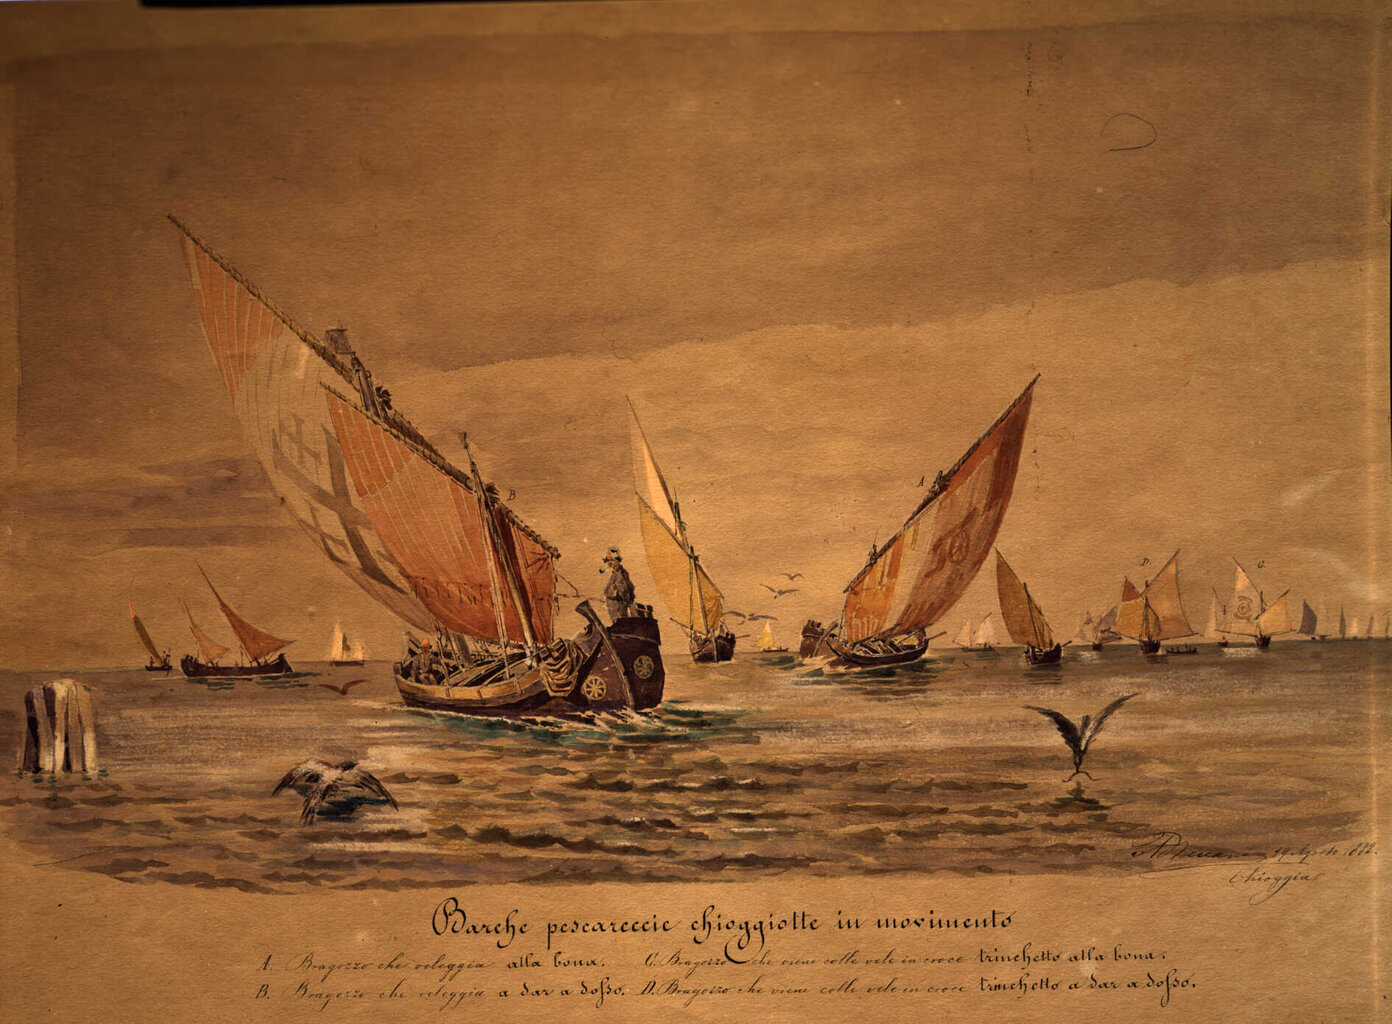 B
A
D.
C.
19 Agosto 882.
Chioggia
Barche pescareccie chioggiotte in movimento
A. Bragozzo che veleggia alla bona. C. Bragozzo che viene colle vele in croce trinchetto alla bona.
B. Bragozzo che veleggia a dar a dosso. D. Bragozzo che viene colle vele in croce trinchetto a dar a dosso.